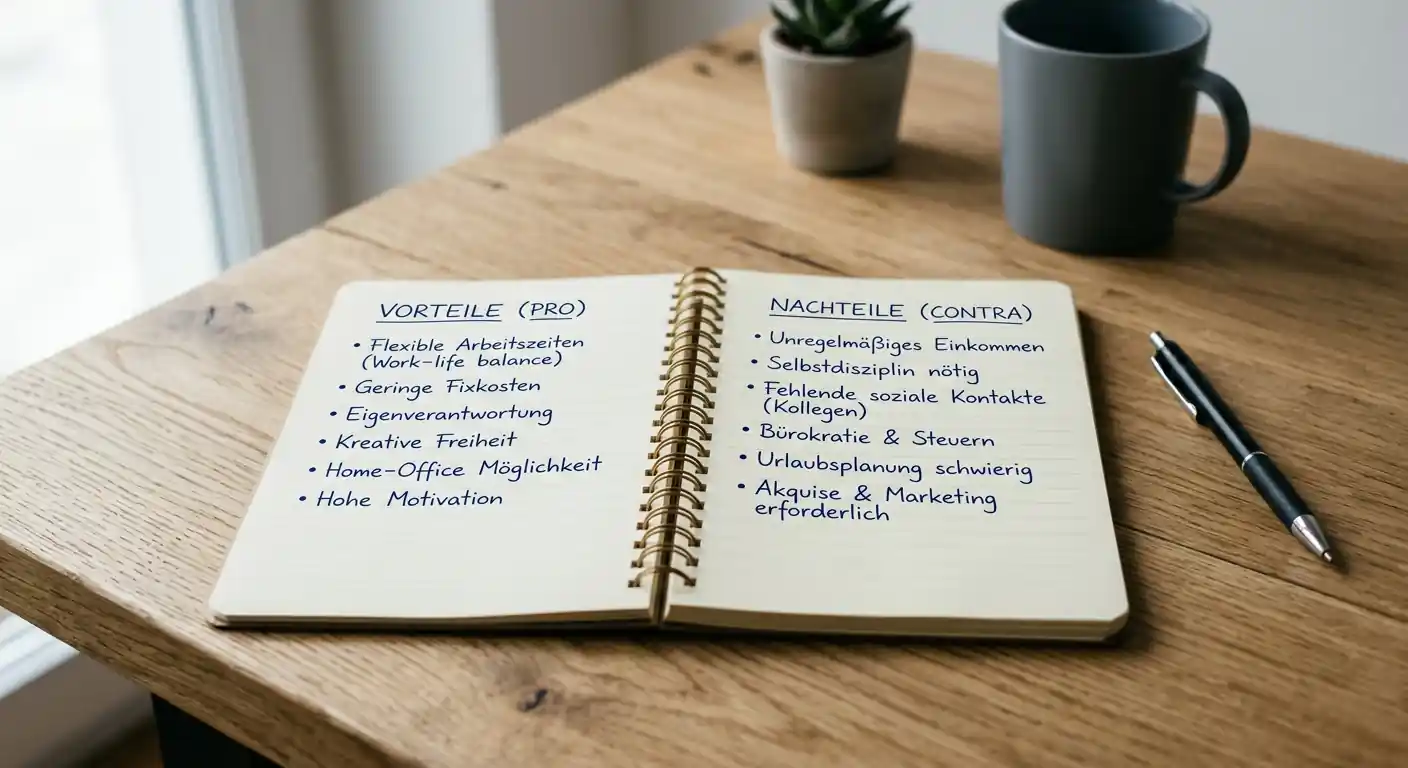 VORTEILE (PRO)
• Flexible Arbeitszeiten
(Work-life balance)
• Geringe Fixkosten
• Eigenverantwortung
• Kreative Freiheit
• Home-Office Möglichkeit
• Hohe Motivation
NACHTEILE (CONTRA)
• Unregelmäßiges Einkommen
• Selbstdisziplin nötig
• Fehlende soziale Kontakte
(Kollegen)
• Bürokratie & Steuern
• Urlaubsplanung schwierig
• Akquise & Marketing
erforderlich